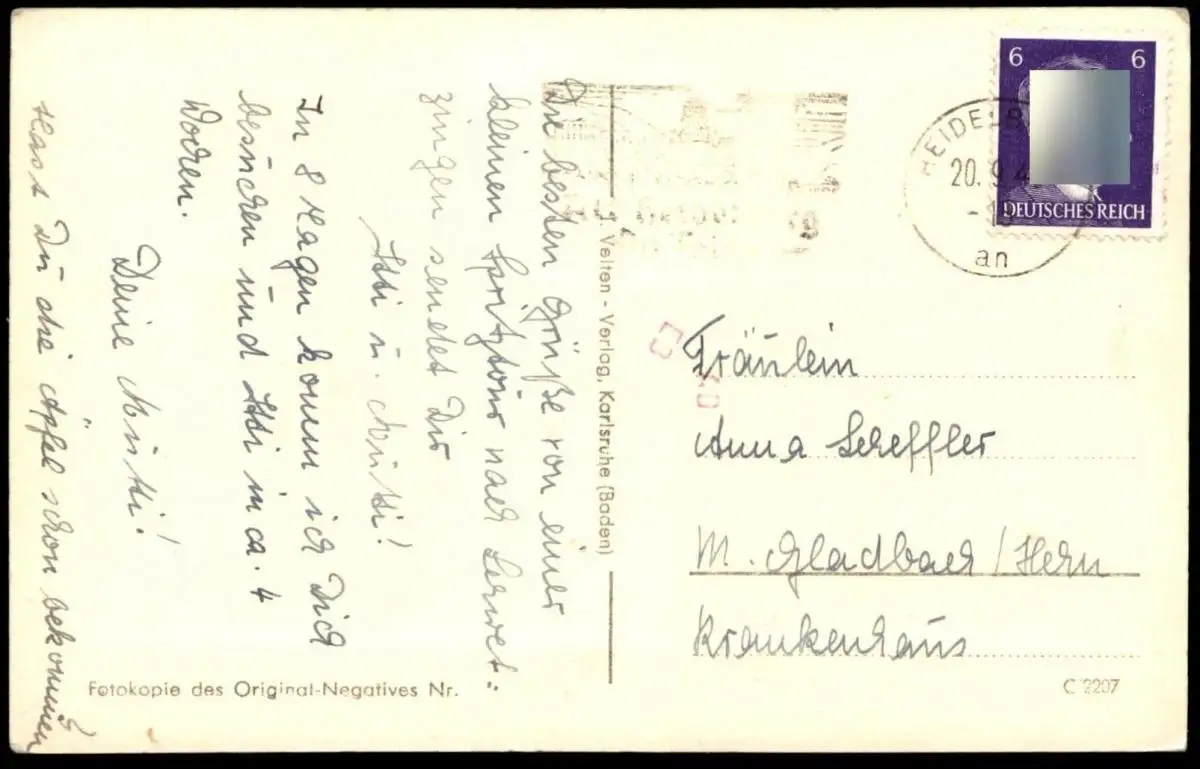 Die besten Grüße von einer
kleinen Spritztour nach Schwet-
zingen sendet Dir
Atti u. Mutti!
In 8 Tagen komm ich Dich
besuchen und Atti in ca. 4
Wochen.
Deine Mutti!
Hast Du die Äpfel schon bekommen?
Velten - Verlag, Karlsruhe (Baden)
Fotokopie des Original-Negatives Nr.
6 6
DEUTSCHES REICH
20.9.4
an
Fräulein
Anna Scheffler
M. Gladbach / Hern
Krankenhaus
C 2207